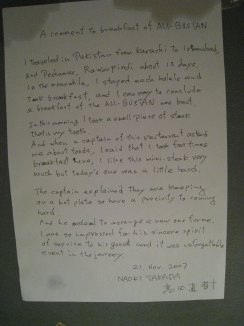 A comment to breakfast of ALI-BUSTAN
I traveled in Pakistan from Karachi to Islamabad,
and Peshawar, Rawarpindi about 12 days.
In the meanwhile, I stayed each hotels and
took breakfast, and I can say to conclude
a breakfast of the ALI-BUSTAN was best.
In this morning I took a small piece of steak
that is my teeth
And when a captain of this restaurant asked
me about foods, I said that I took four times
breakfast here, I like this mini steak very
much but today's one was a little hard.
The captain explained They are keeping
on a hot plate so have a proclivity to coming
hard
And he ordered to arrange a new one for me.
I was so impressed for his sincere spirit
of service to his guest and it was unforgettable
event in the journey
21 Nov. 2007
NAOKI TAKADA
高田直樹